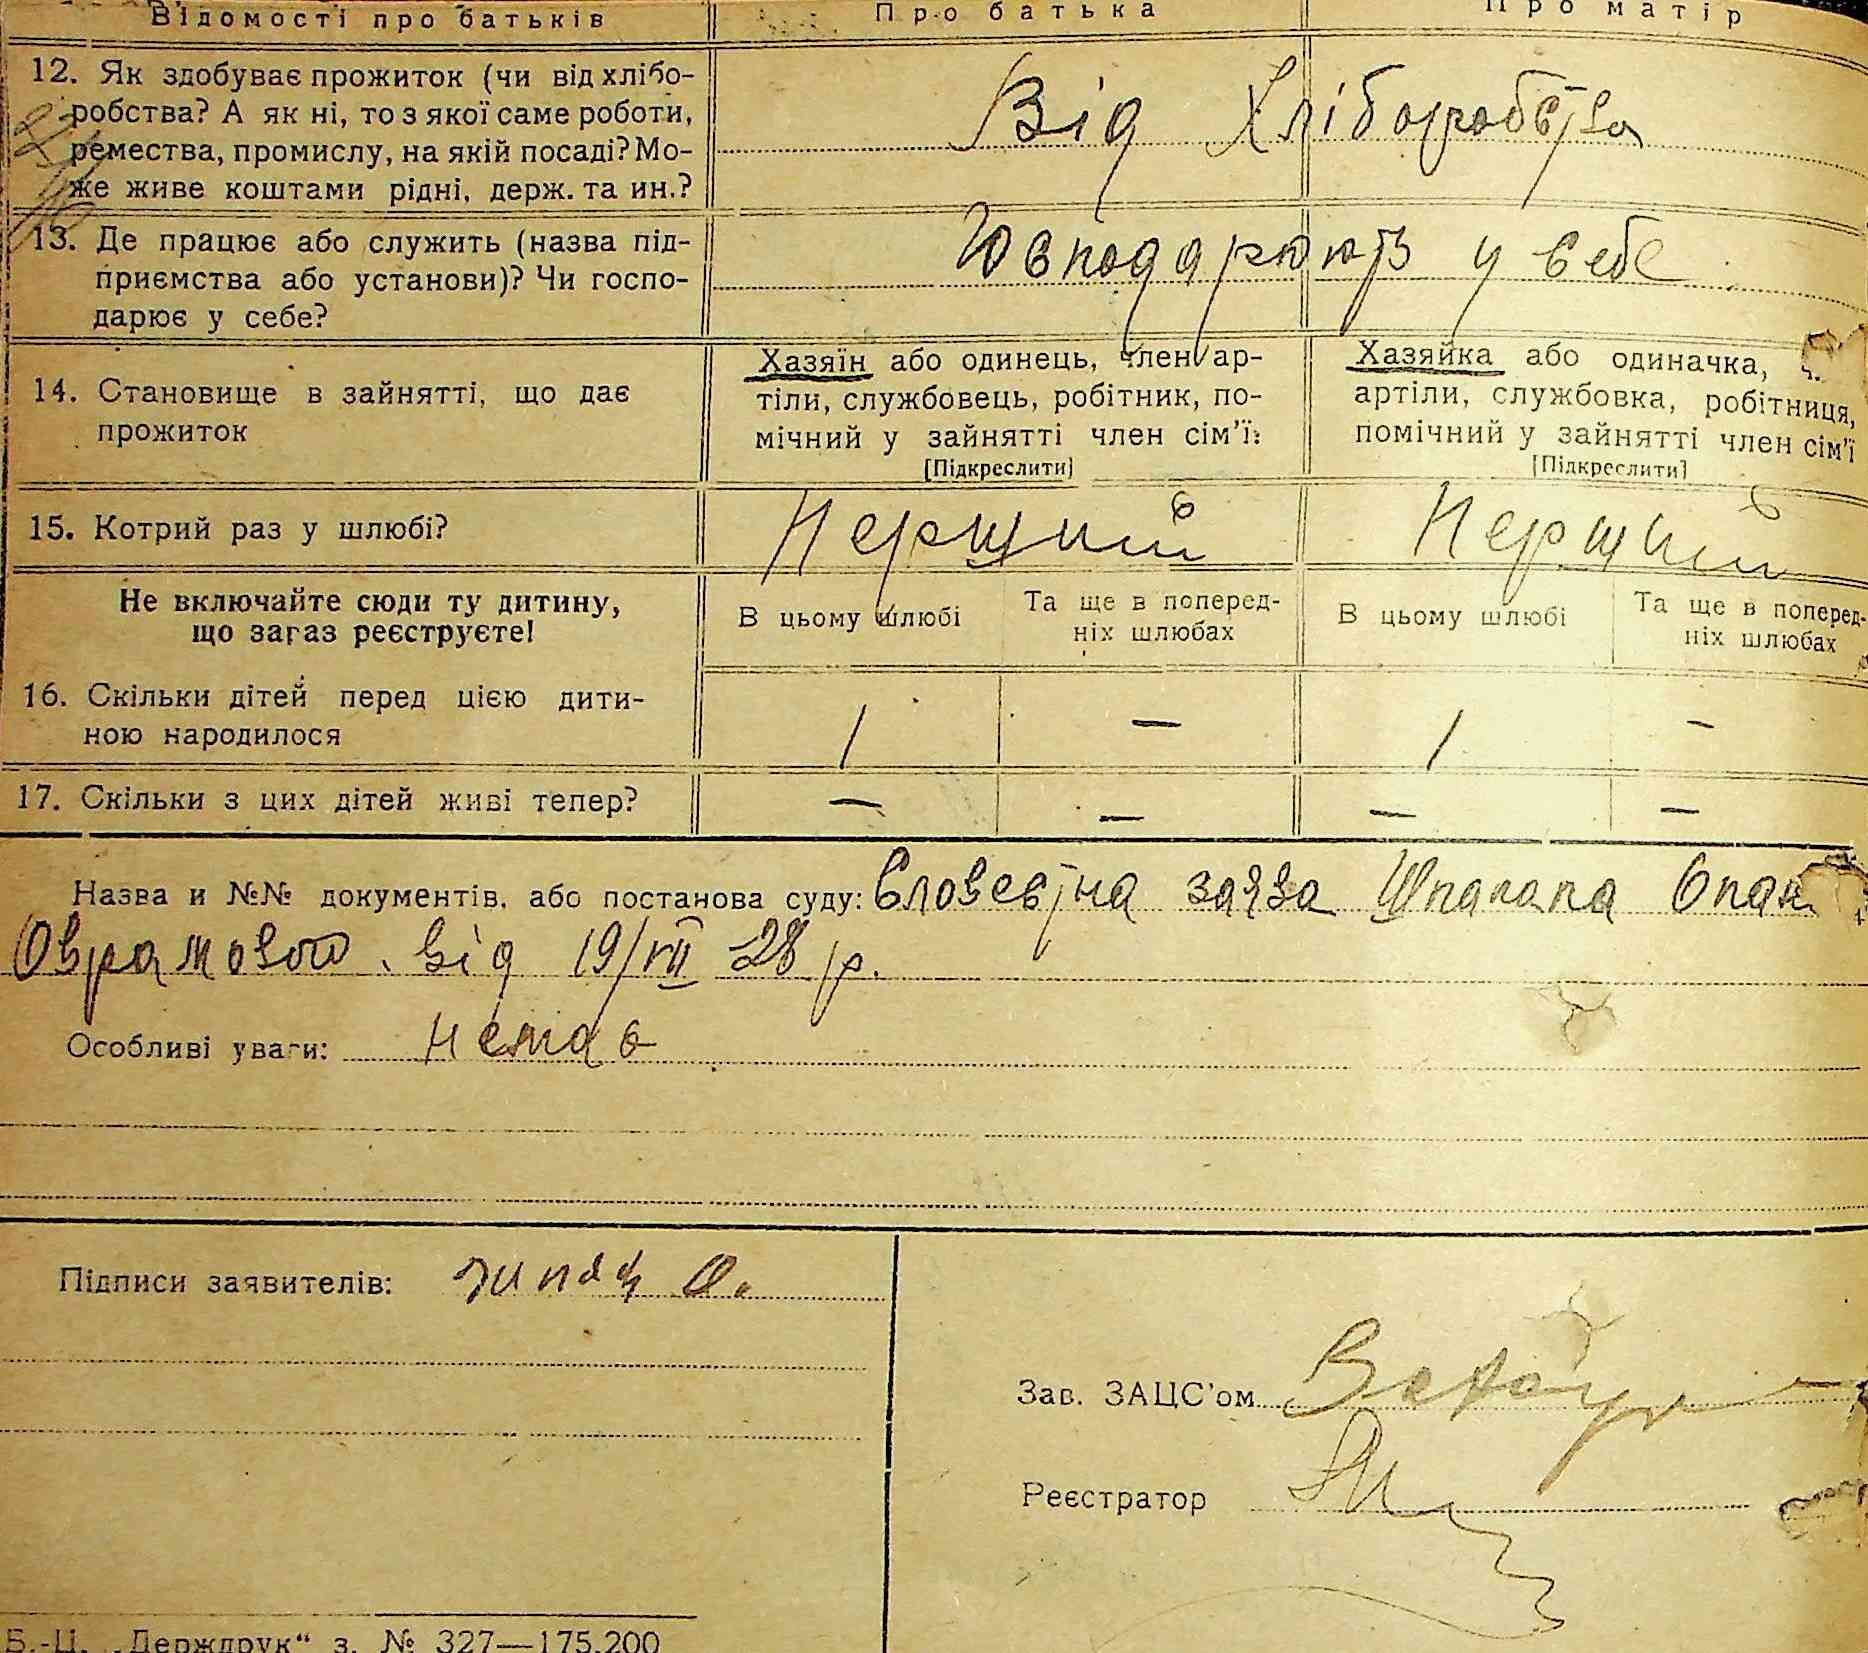 Відомості про батьків Про батька Про матір
12. Як здобуває прожиток (чи від хлібо-
робства? А як ні, то з якої саме роботи,
ремества, промислу, на якій посаді? Мо-
же живе коштами рідні, держ. та ин.?
Від Хліборобства
13. Де працює або служить (назва під-
приємства або установи)? Чи госпо-
дарює у себе?
Господарюють у себе
14. Становище в зайнятті, що дає
прожиток
Хазяїн або одинець, член ар-
тіли, службовець, робітник, по-
мічний у зайнятті член сім'ї:
[Підкреслити]
Хазяйка або одиначка,
артіли, службовка, робітниця,
помічний у зайнятті член сім'ї
[Підкреслити]
15. Котрий раз у шлюбі? Перший Перший
Не включайте сюди ту дитину,
що зараз реєструєте!
В цьому шлюбі
Та ще в поперед-
ніх шлюбах
В цьому шлюбі
Та ще в поперед-
ніх шлюбах
16. Скільки дітей перед цією дити-
ною народилося
1 — 1 —
17. Скільки з цих дітей живі тепер? — — — —
Назва и №№ документів, або постанова суду: Словестна заява
від 19/VII 28 р.
Особливі уваги: немає
Підписи заявителів:
Зав. ЗАЦС'ом
Реєстратор
Б.-Ц. „Держдрук“ з. № 327—175.200